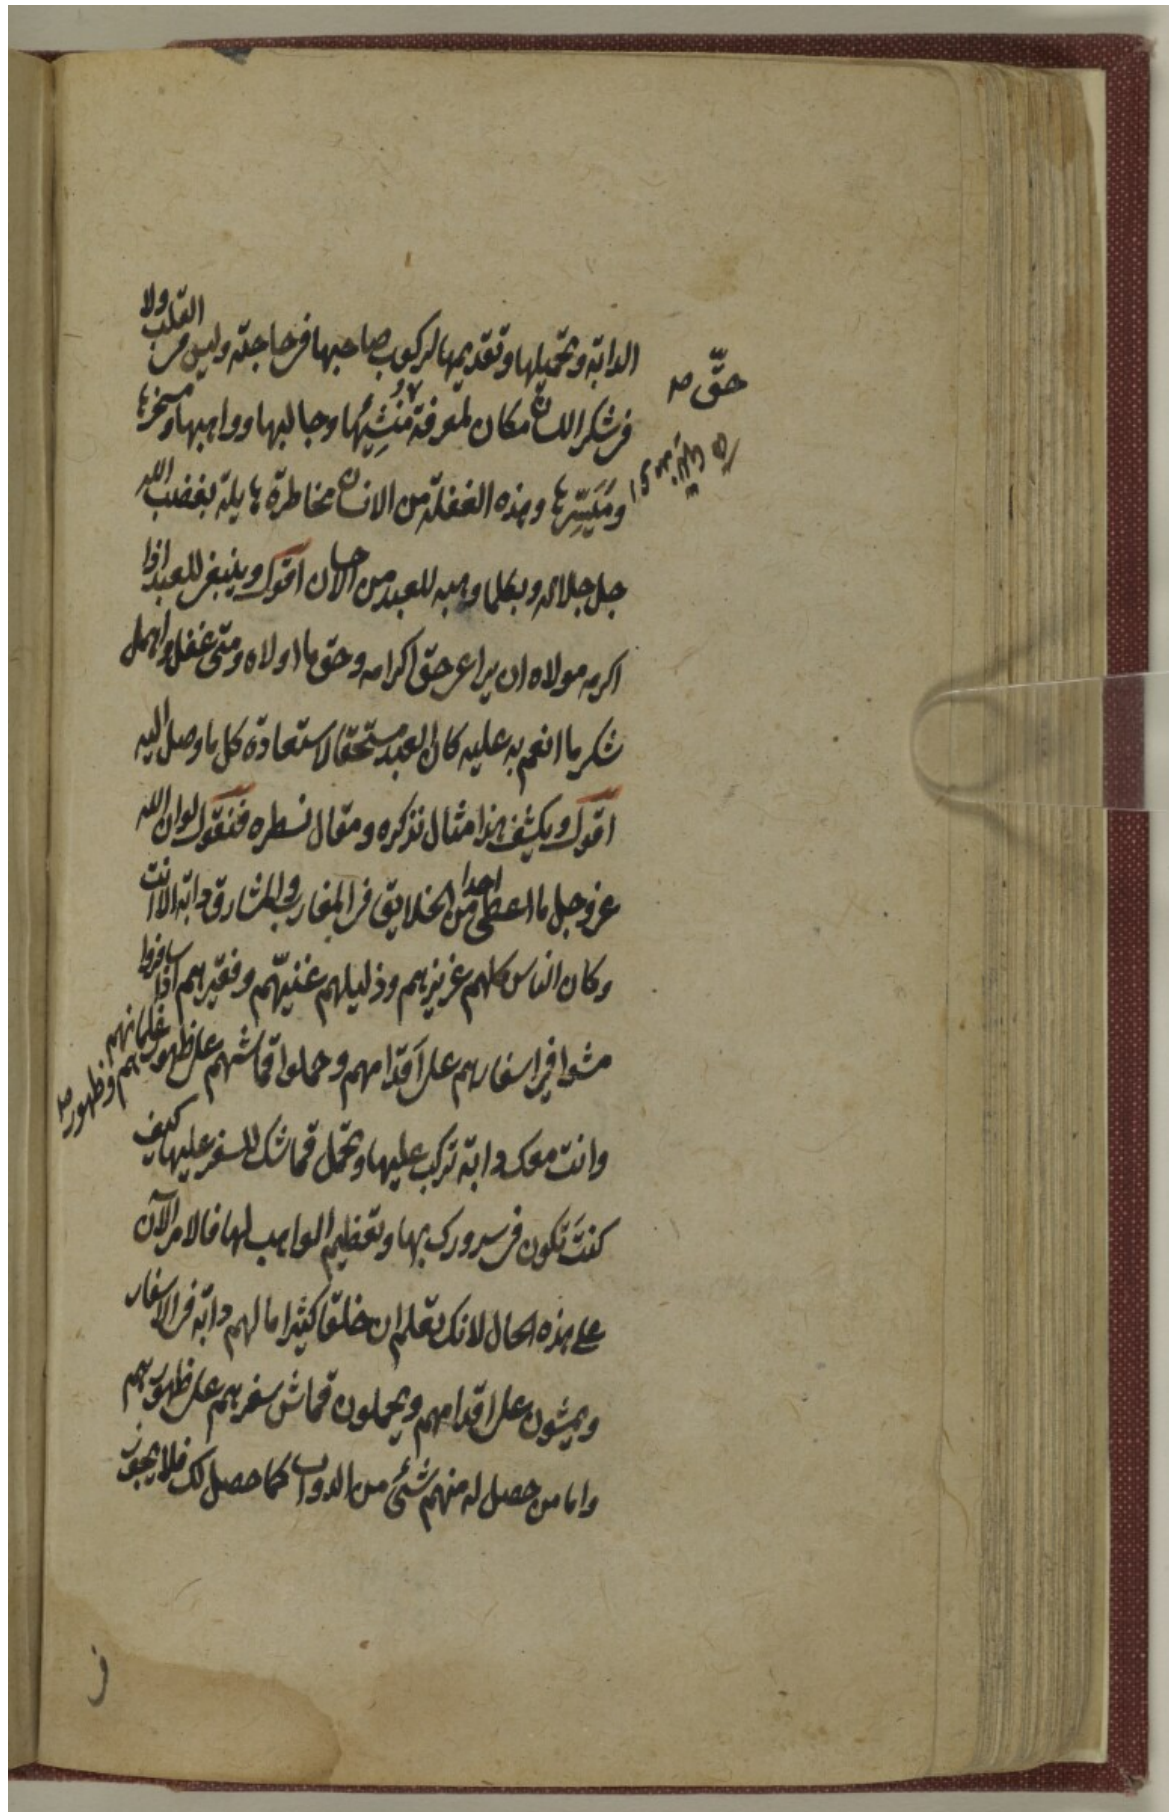 الدابّة وتحميلها وتقديمها لركوب صاحبها في حاجته وليس في القلب ولا
في شكر اللسان مكان لمعرفة مُنشِيْها وجالبها وواهبها ومسخرها
حقّ صه
ومَيَسِّرها وهذه الغفلة من الانسان مخاطرة هايلة بغضب الله
جل جلاله وبكلما وهبه للعبد من الاحسان اقول وينبغي للعبد اذا
اكرمه مولاه ان يراعي حق اكرامه وحق ما اولاه ومتى غفل واهمل
شكر ما انعم به عليه كان العبد مستحقا لاستعادة كل ما وصل اليه
اقول ويكشف هذا مثال نذكره ومقال نسطره فنقول لو ان الله
عز وجل ما اعطى احدا من الخلايق في المغارب والمشارق دابّة الا انت
وكان الناس كلهم عزيزهم وذليلهم غنيّهم وفقيرهم اذا سافروا
مشوا في اسفارهم على اَقدامهم وحملوا قماشهم على ظهور غلمانهم
وظهورهم صه
وانت معك دابّة تركب عليها وتحمل قماشك للسفر عليها كيف
كنتَ تكون في سرورك بها وتعظيم الواهب لها فالامر الآن
على هذه الحال لانك تعلم ان خلقا كثيرا ما لهم دابّة في الاسفار
ويمشون على اقدامهم ويحملون قماش سفرهم على ظهورهم
واما من حصل له منهم شئ من الدواب كما حصل لك فلا يخفّ